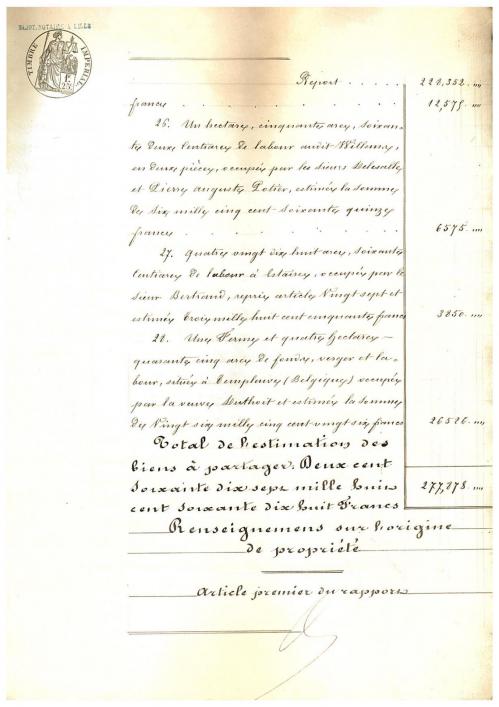 BAJOT, NOTAIRE A LILLE
TIMBRE IMPERIAL
Report . . . . . 228,352. "
francs . . . . . . . . . . . . . . 12,575 "
26. Un hectare, cinquante ares, soixan-
te deux Centiares de labour audit Willems,
en deux pièces, occupées par les sieurs Delesalle
et Pierre auguste Potier, estimées la somme
de six mille cinq cent-soixante quinze
francs . . . . . . . . . . . 6575 "
27. Quatre vingt dix huit ares, soixante
Centiares de labour à Estaires, occupés par le
sieur Bertrand, repris article Vingt sept et
estimés Trois mille huit cent cinquante francs 3850 "
28. Une Ferme et quatre hectares
quarante cinq ares de fonds, verger et la-
bour, située à Templeuve (Belgique) occupée
par la veuve Duthoit et estimée la somme
de Vingt six mille cinq cent vingt six francs 26526 "
Total de l'estimation des
biens à partager. Deux cent
soixante dix sept mille huit
cent soixante dix huit Francs 277,878 "
Renseignemens sur l'origine
de propriété
Article premier du rapport